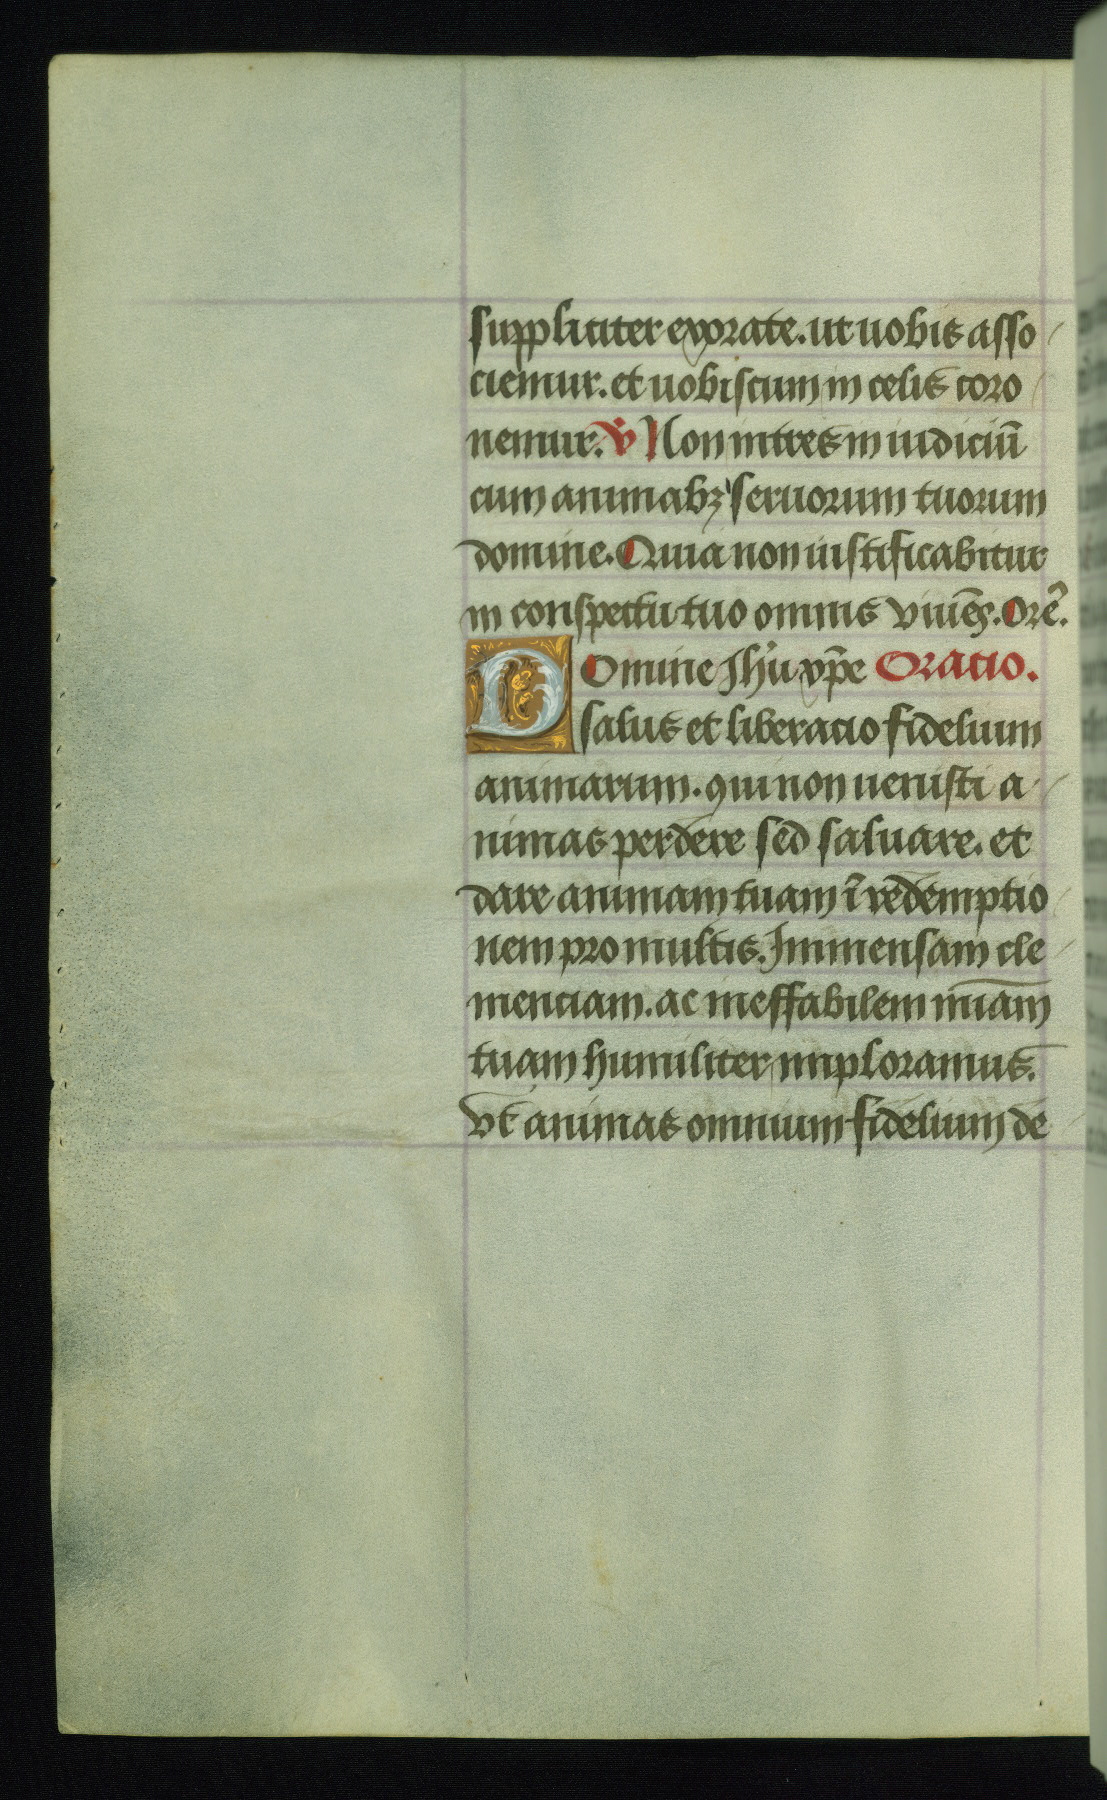 suppliciter exorate. ut uobis asso
ciemur. et uobiscum in celis coro
nemur. v̇ Non intres in iudiciū
cum animabꝫ seruorum tuorum
domine. Quia non iustificabitur
in conspectu tuo omnis viuēs. Orē.
Domine Jhū xp̄e Oracio.
salus et liberacio fidelium
animarum. qui non uenisti a
nimas perdere sed saluare. et
dare animam tuam ī redemptio
nem pro multis. Immensam cle
menciam. ac ineffabilem mīam
tuam humiliter imploramus.
vt animas omnium fidelium de